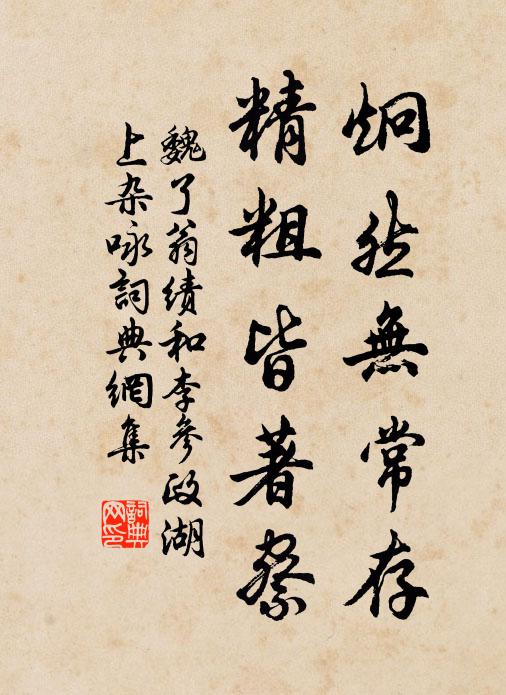 炯然無常存
精粗皆著察
魏了翁績和李參政湖
上杂咏詞典網集
詞典
网印